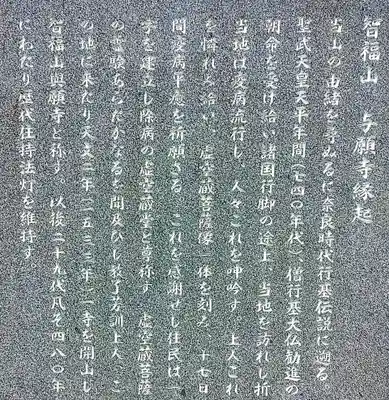 智福山　与願寺縁起
当山の由緒を尋ぬるに奈良時代行基伝説に遡る
聖武天皇天平年間(七四〇年代)、僧行基大仏勧進の
朝命を受け給い諸国行脚の途上、当地を訪れし折
当地は疫病流行し、人々これを呻吟す、上人これ
を憐れみ給い、虚空蔵菩薩像一体を刻み、十七日
間疫病平癒を祈願さる、これを感謝せし住民は一
宇を建立し除病の虚空蔵堂と尊称す　虚空蔵菩薩
の霊験あらたかなるを聞及びし教了芳訓上人、こ
の地に来たり天文二年(一五三三年)一寺を開山し
智福山與願寺と称す、以後二十九代凡そ四八〇年
にわたり歴代住持法灯を維持す